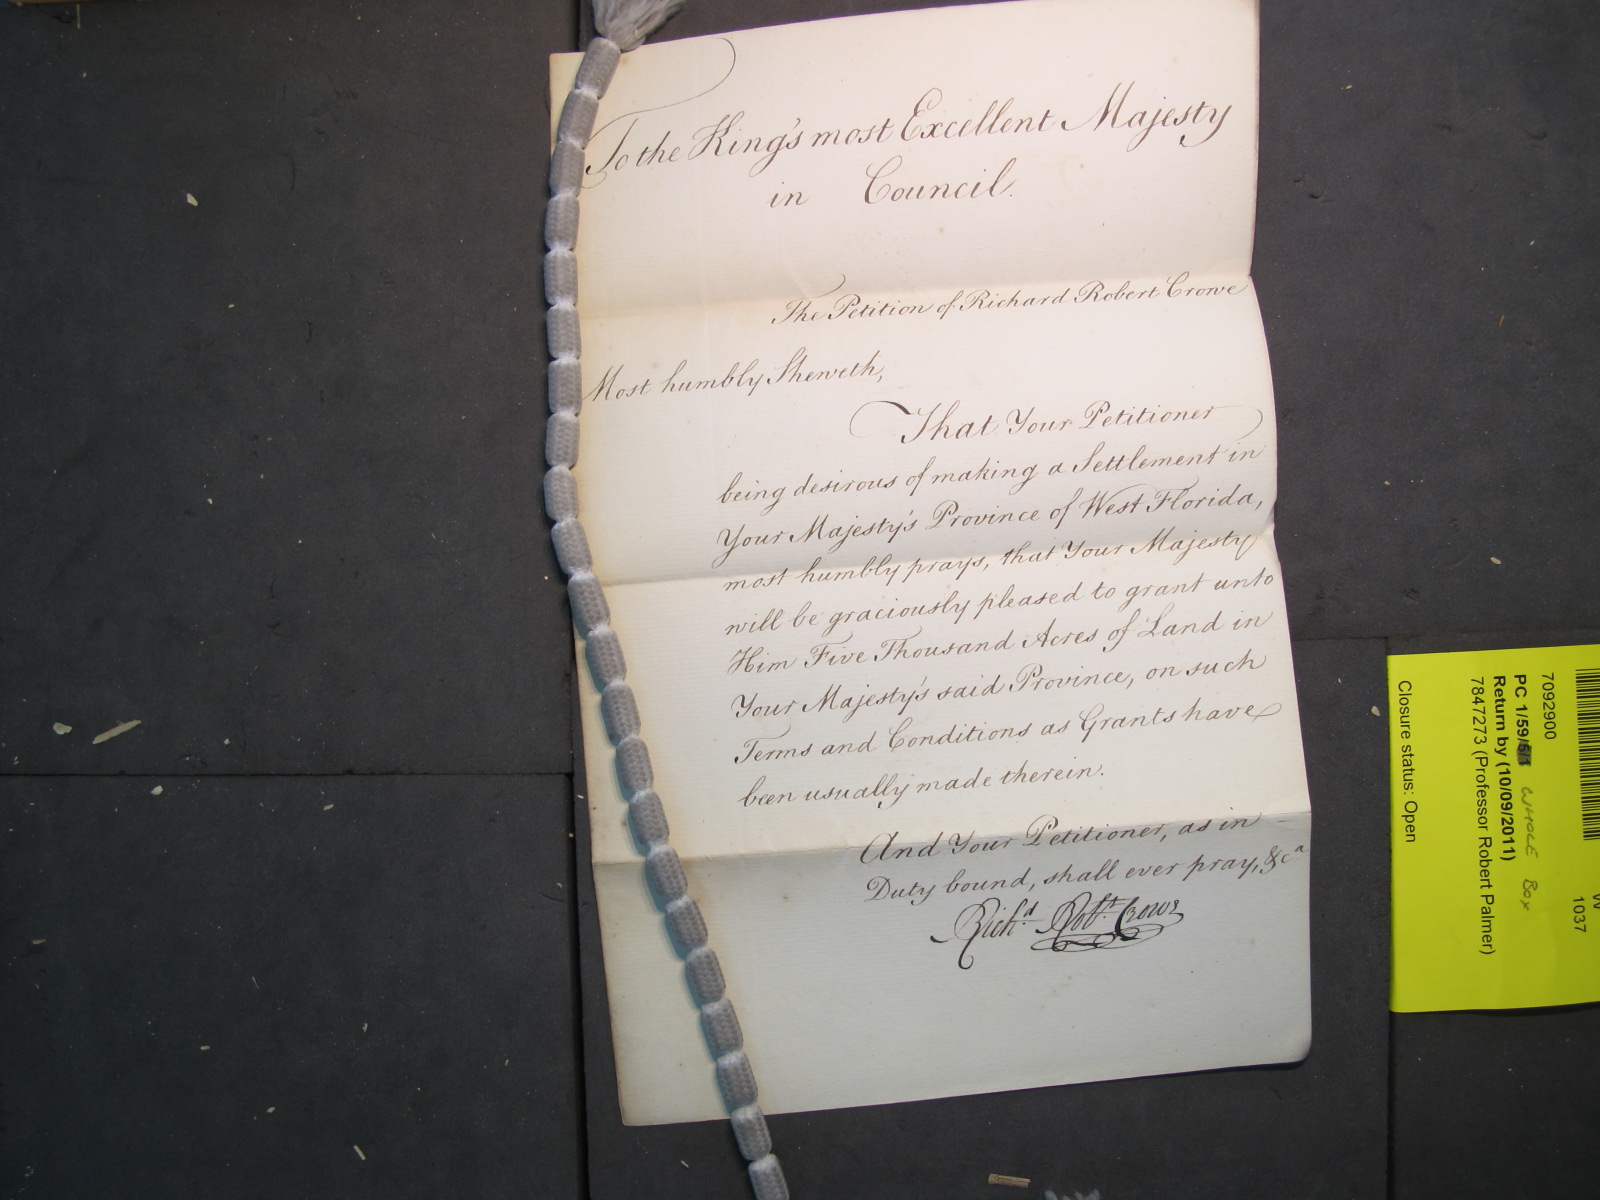 To the King's most Excellent Majesty
in Council.
The Petition of Richard Robert Crowe
Most humbly Sheweth,
That Your Petitioner
being desirous of making a Settlement in
Your Majesty's Province of West Florida,
most humbly prays, that Your Majesty
will be graciously pleased to grant unto
Him Five Thousand Acres of Land in
Your Majesty's said Province, on such
Terms and Conditions as Grants have
been usually made therein.
And Your Petitioner, as in
Duty bound, shall ever pray, &cª
Richd. Robt. Crowe
7092900
PC 1/59/5/1 WHOLE BOX
Return by (10/09/2011)
7847273 (Professor Robert Palmer)
Closure status: Open
W
1037